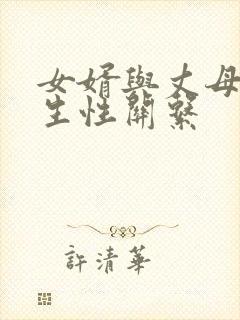 女婿與丈母
生性關繫
許清華